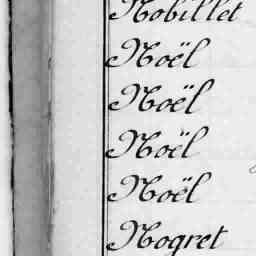 Nobillet
Noël
Noël
Noël
Noël
Nogret